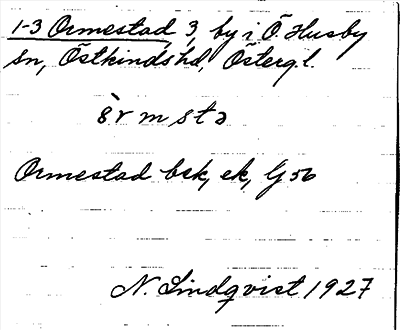 1-3 Ormestad, 3, by i Ö. Husby
sn, Östkinds hd, Österg. l.
ormsta
Ormestad bsk, ek, G 56
N. Lindqvist 1927